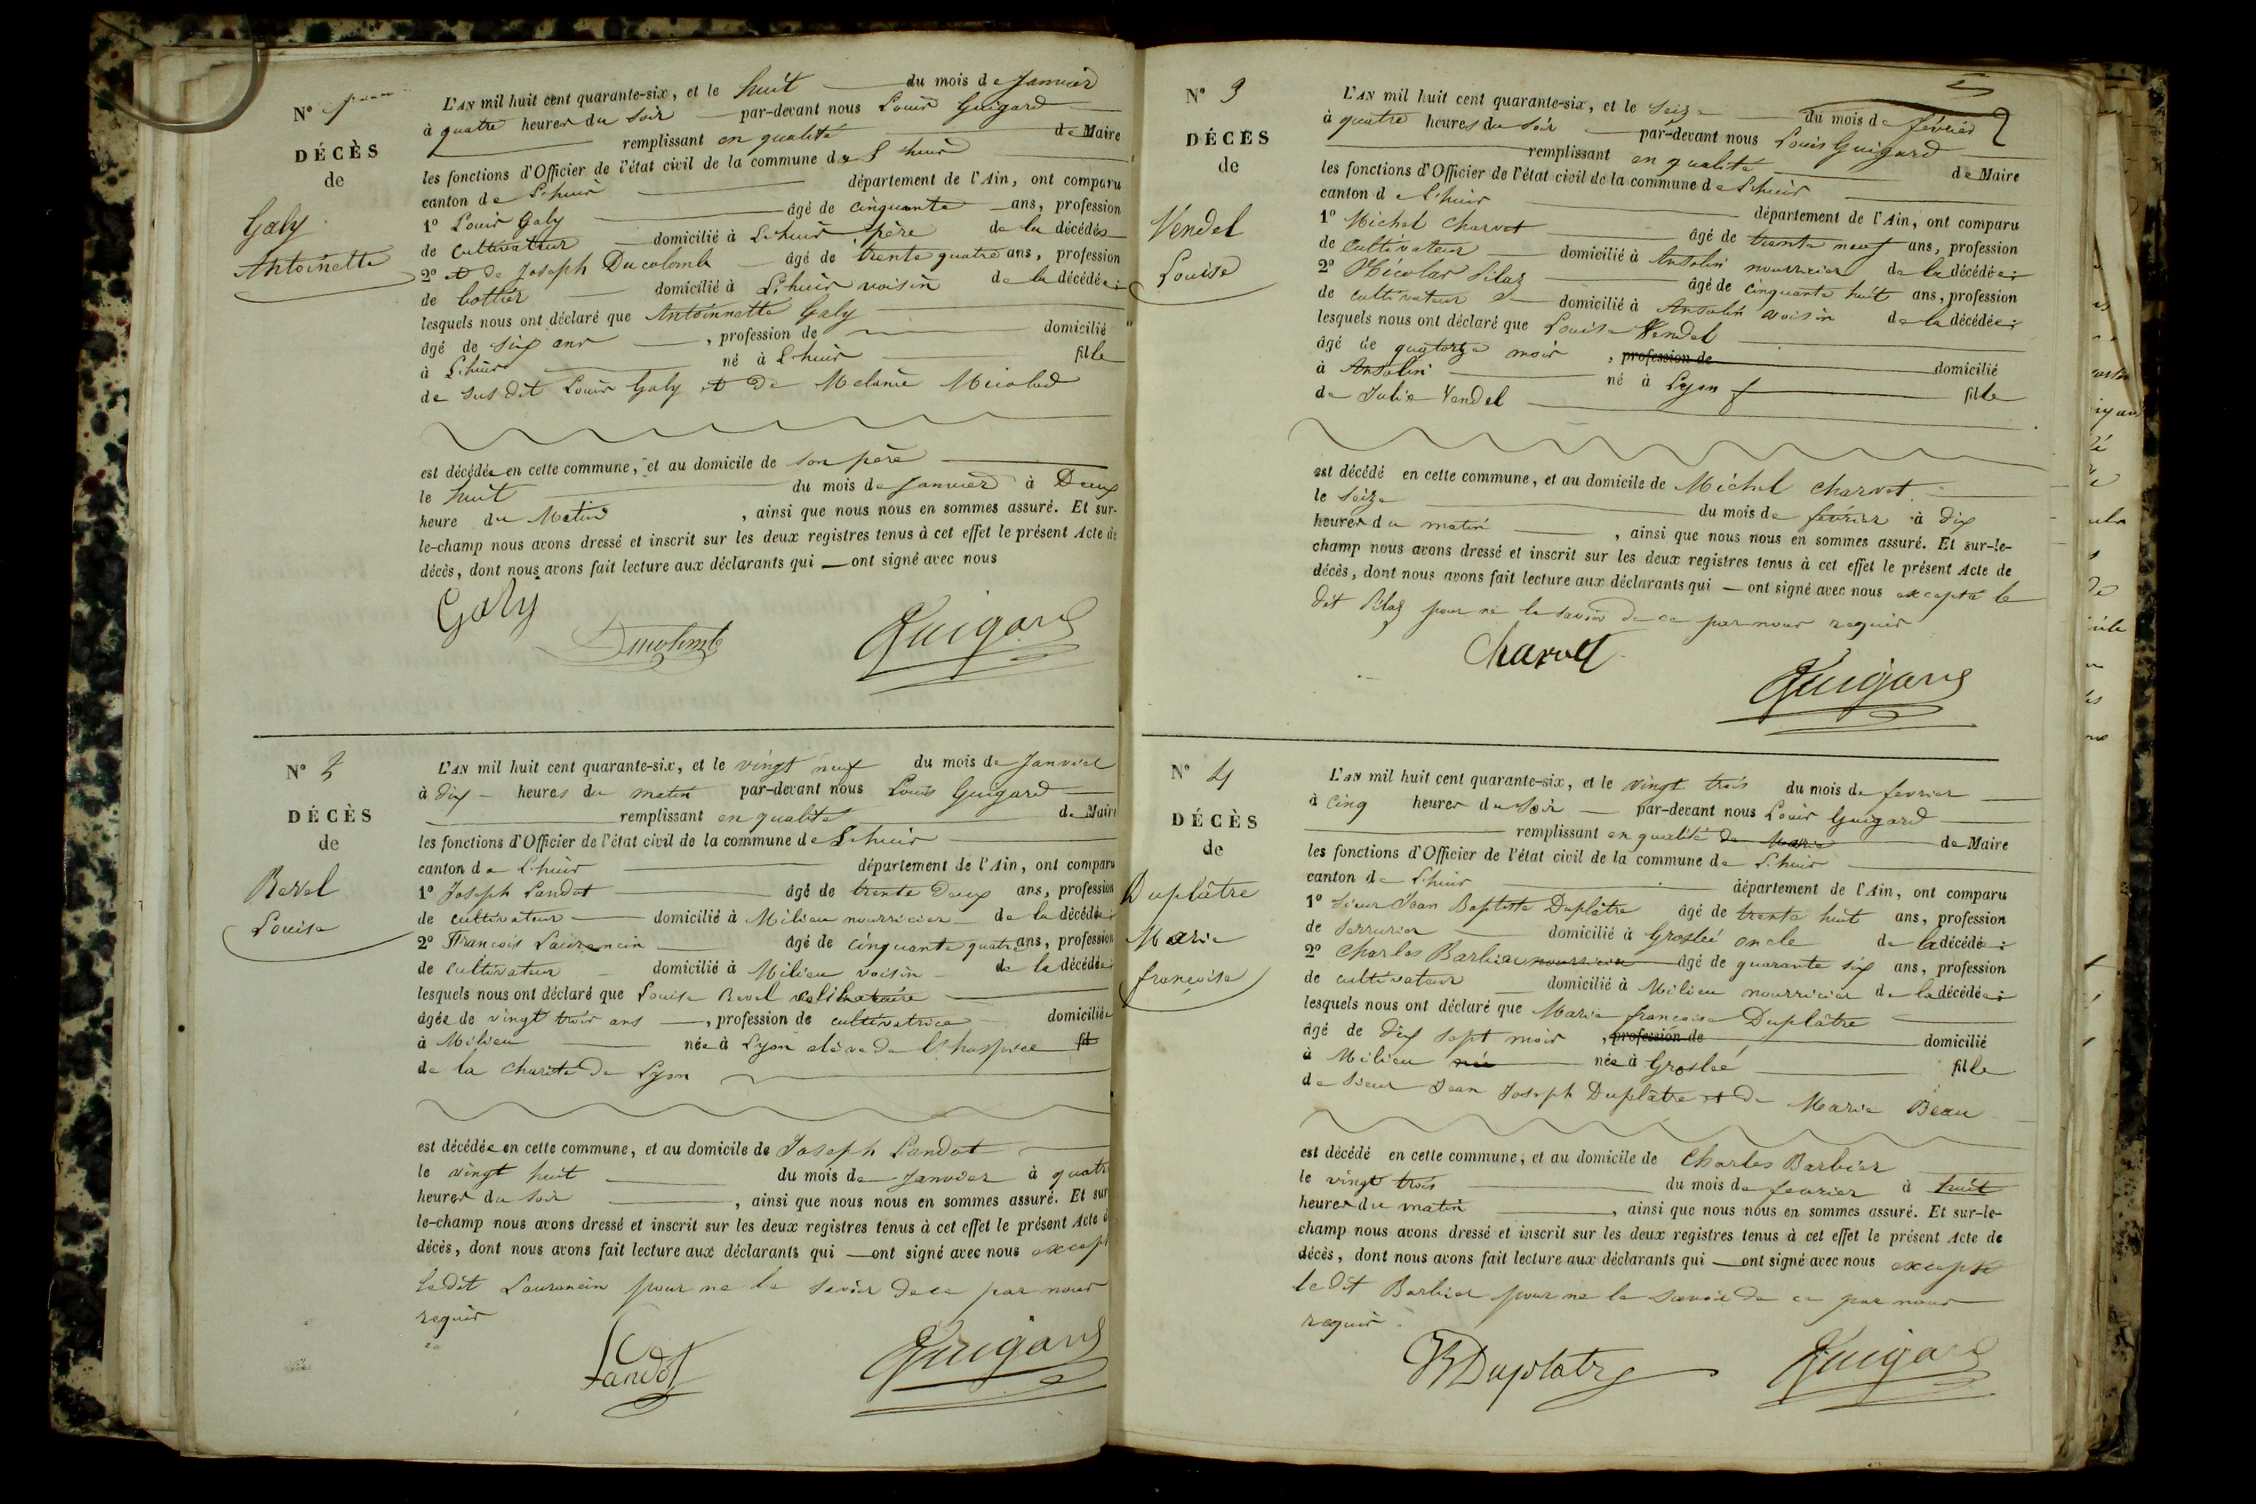 N° 1
DÉCÈS
de
Galy
Antoinette
L'AN mil huit cent quarante-six, et le huit du mois de Janvier
à quatre heures du soir par-devant nous Louis Guigard
remplissant en qualité de Maire
les fonctions d'Officier de l'état civil de la commune de Lhuis
canton de Lhuis département de l'Ain, ont comparu
1° Louis Galy âgé de cinquante ans, profession
de cultivateur domicilié à Lhuis père de la décédée
2° et de Joseph Ducolomb âgé de trente quatre ans, profession
de bottier domicilié à Lhuis voisin de la décédée;
lesquels nous ont déclaré que Antoinette Galy
âgé de six ans , profession de domicilié
à Lhuis né à Lhuis fille
de susdit Louis Galy et de Melanie Micolod
est décédée en cette commune, et au domicile de son père
le huit du mois de Janvier à Deux
heure du Matin , ainsi que nous nous en sommes assuré. Et sur-
le-champ nous avons dressé et inscrit sur les deux registres tenus à cet effet le présent Acte de
décès, dont nous avons fait lecture aux déclarants qui ont signé avec nous
Galy
Ducolomb
Guigard
N° 2
DÉCÈS
de
Revel
Louise
L'AN mil huit cent quarante-six, et le vingt neuf du mois de Janvier
à dix heures du matin par-devant nous Louis Guigard
remplissant en qualité de Maire
les fonctions d'Officier de l'état civil de la commune de Lhuis
canton de Lhuis département de l'Ain, ont comparu
1° Joseph Landot âgé de trente Deux ans, profession
de cultivateur domicilié à Milieu nourricier de la décédée;
2° François Laurencin âgé de cinquante quatre ans, profession
de cultivateur domicilié à Milieu voisin de la décédée;
lesquels nous ont déclaré que Louise Revel celibataire
âgée de vingt trois ans , profession de cultivatrice domiciliée
à Milieu née à Lyon elève de l'hospice fil
de la charité de Lyon
est décédée en cette commune, et au domicile de Joseph Landot
le vingt huit du mois de Janvier à quatre
heures du soir , ainsi que nous nous en sommes assuré. Et sur
le-champ nous avons dressé et inscrit sur les deux registres tenus à cet effet le présent Acte d
décès, dont nous avons fait lecture aux déclarants qui ont signé avec nous except
le dit Laurencin pour ne le savoir de ce par nous
requis
Landot
Guigard
N° 3
DÉCÈS
de
Vendel
Louise
L'AN mil huit cent quarante-six, et le seize du mois de février
à quatre heures du soir par-devant nous Louis Guigard
remplissant en qualité de Maire
les fonctions d'Officier de l'état civil de la commune de Lhuis
canton de Lhuis département de l'Ain, ont comparu
1° Michel Charvet âgé de trente neuf ans, profession
de cultivateur domicilié à Ansolin nourricier de la décédée;
2° Nicolas Pilaz âgé de cinquante huit ans, profession
de cultivateur domicilié à Ansolin voisin de la décédée;
lesquels nous ont déclaré que Louise Vendel
âgé de quatorze mois , profession de domicilié
à Ansolin né à Lyon fille
de Julie Vendel
est décédé en cette commune, et au domicile de Michel Charvet.
le seize du mois de février à dix
heures du matin , ainsi que nous nous en sommes assuré. Et sur-le-
champ nous avons dressé et inscrit sur les deux registres tenus à cet effet le présent Acte de
décès, dont nous avons fait lecture aux déclarants qui ont signé avec nous excepté le
dit Pilaz pour ne le savoir de ce par nous requis
Charvet
Guigard
N° 4
DÉCÈS
de
Duplâtre
Marie
françoise
L'AN mil huit cent quarante-six, et le vingt trois du mois de fevrier
à cinq heures du soir par-devant nous Louis Guigard
remplissant en qualité de Marie de Maire
les fonctions d'Officier de l'état civil de la commune de Lhuis
canton de Lhuis département de l'Ain, ont comparu
1° sieur Jean Baptiste Duplâtre âgé de trente huit ans, profession
de serrurier domicilié à Groslée oncle de la décédée;
2° Charles Barbier nourricier âgé de quarante six ans, profession
de cultivateur domicilié à Milieu nourricier de la décédée;
lesquels nous ont déclaré que Marie françoise Duplâtre
âgé de dix sept mois , profession de domicilié
à Milieu née née à Groslée fille
de sieur Jean Joseph Duplâtre et de Marie Beau
est décédé en cette commune, et au domicile de Charles Barbier
le vingt trois du mois de fevrier à huit
heures du matin , ainsi que nous nous en sommes assuré. Et sur-le-
champ nous avons dressé et inscrit sur les deux registres tenus à cet effet le présent Acte de
décès, dont nous avons fait lecture aux déclarants qui ont signé avec nous excepté
le dit Barbier pour ne le savoir de ce par nous
requis.
JB Duplatre
Guigard